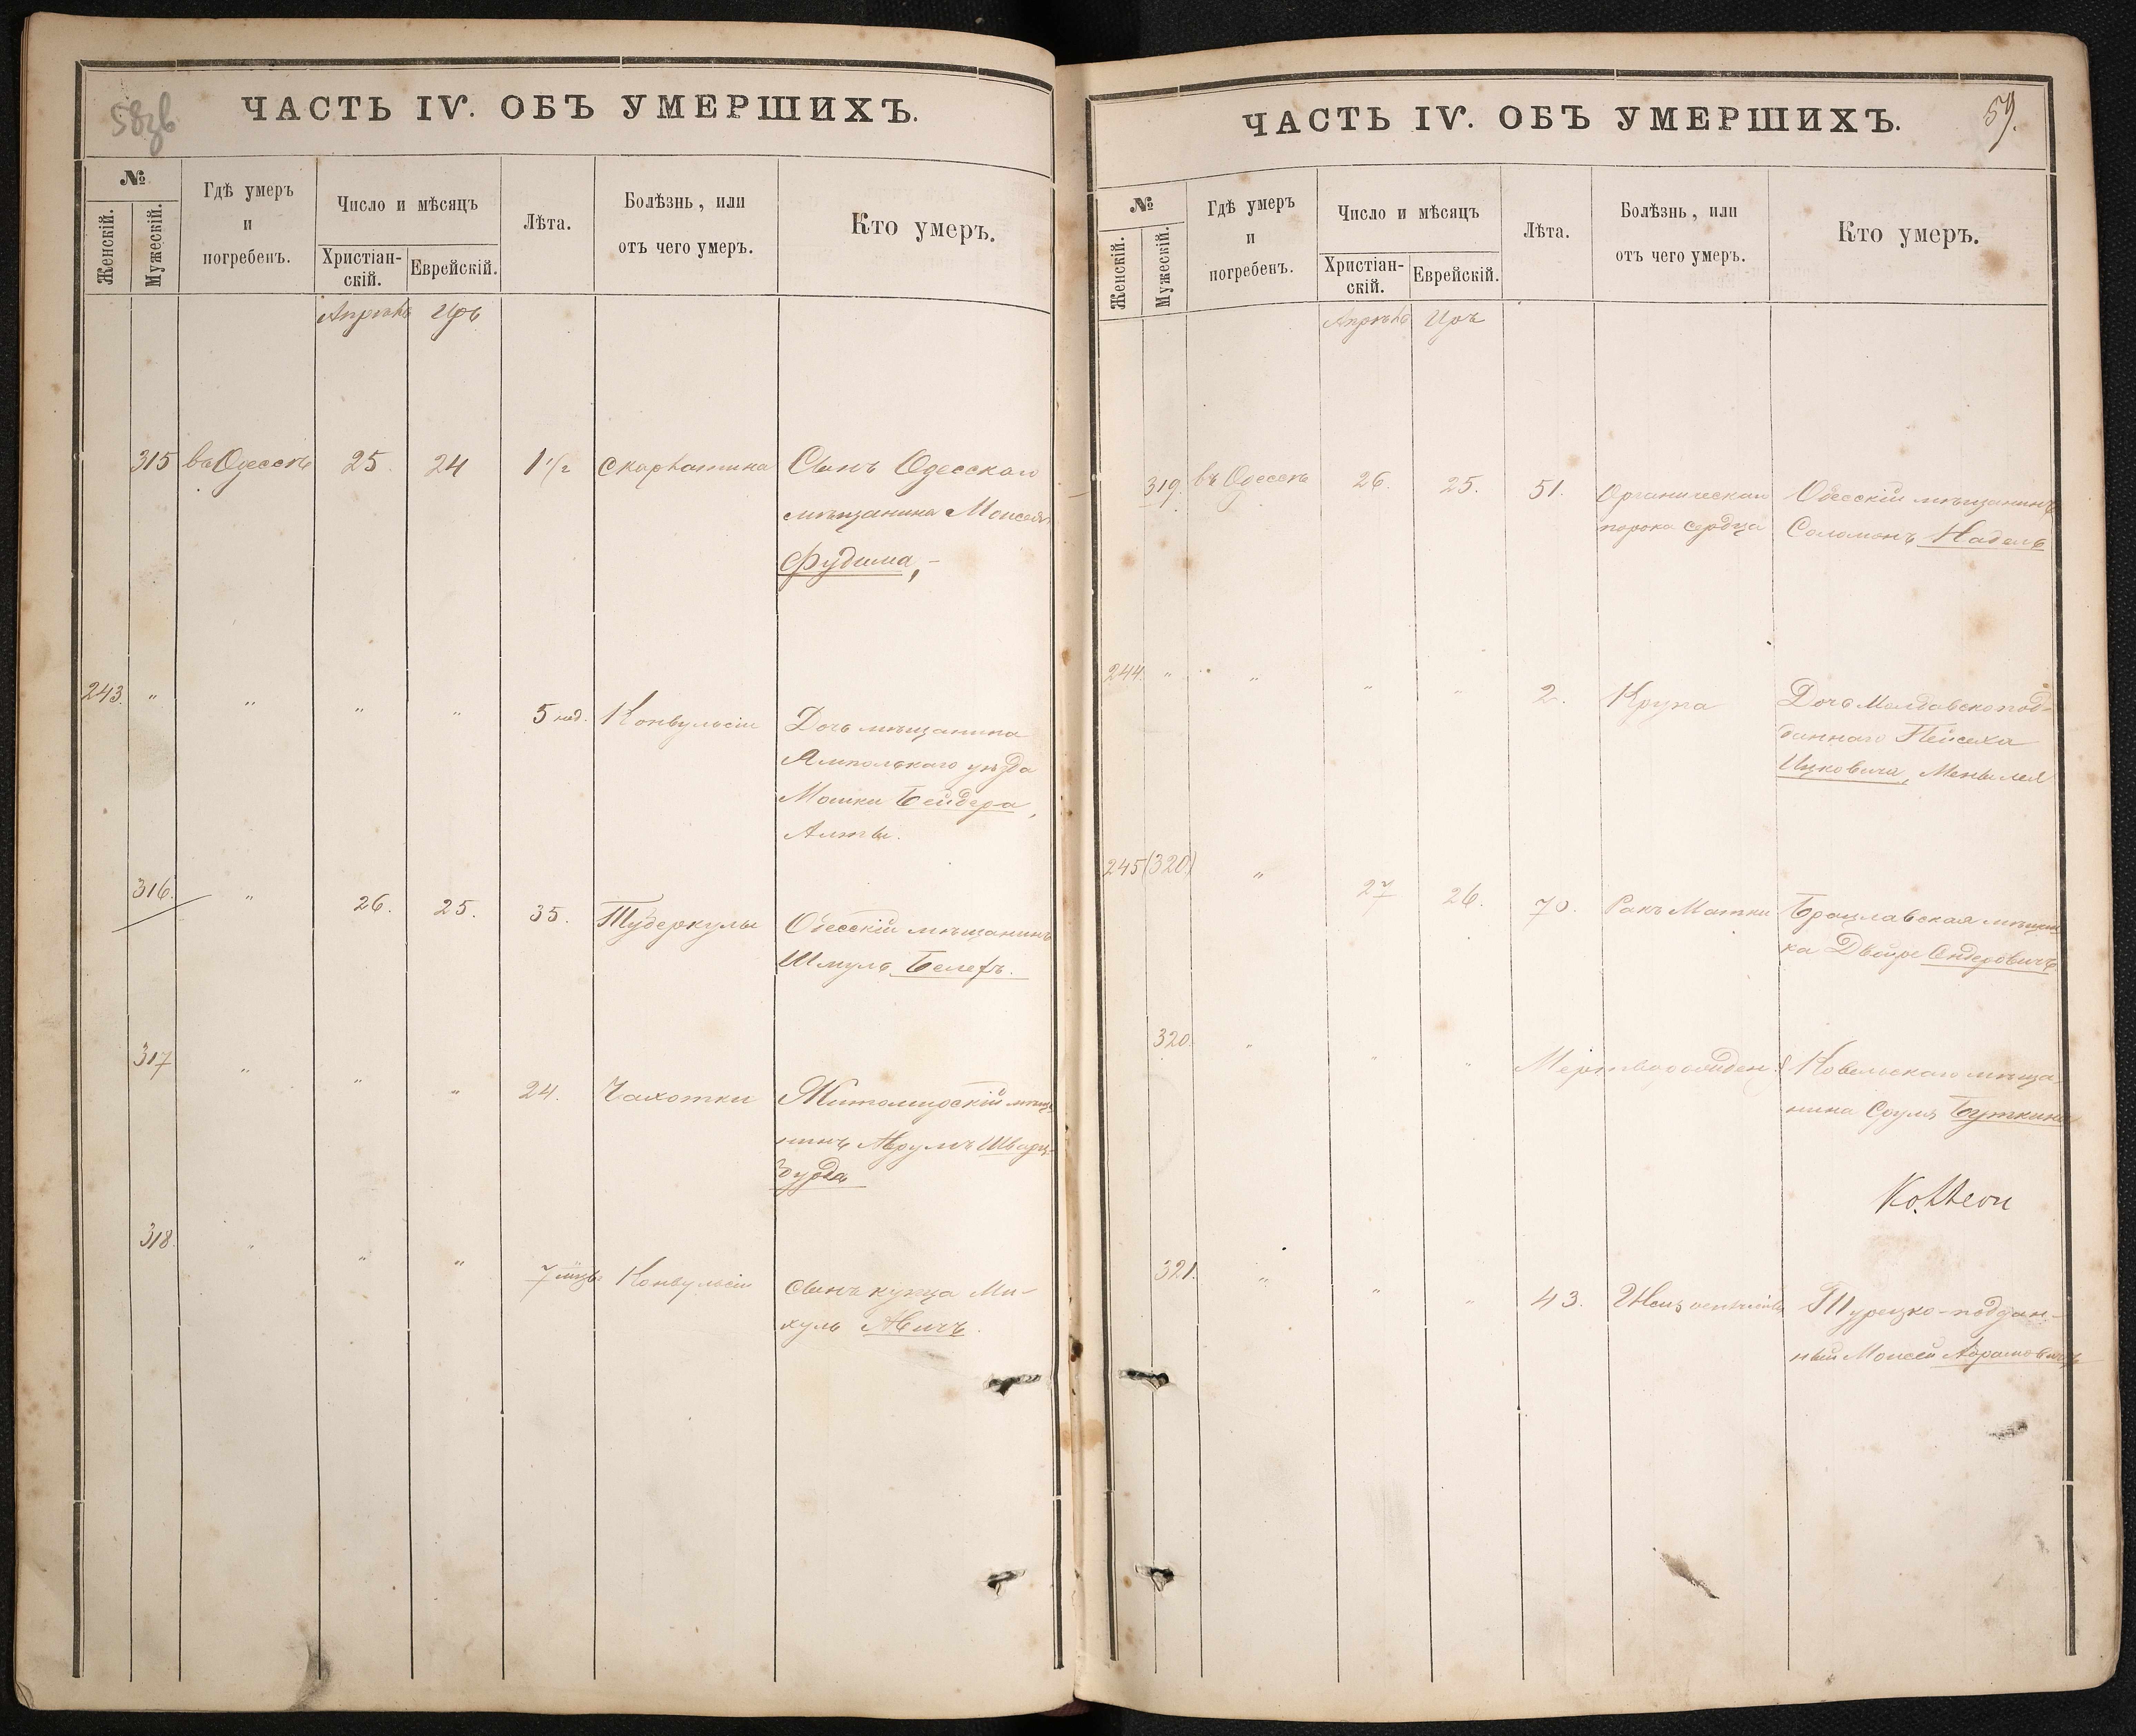 58зв
ЧАСТЬ IV. ОБЪ УМЕРШИХЪ.
№
Женскій.
Мужескій.
Гдѣ умеръ
и
погребенъ.
Число и мѣсяцъ
Христіан-
скій.
Еврейскій.
Лѣта.
Болѣзнь, или
отъ чего умеръ.
Кто умеръ.
Апрѣль Иръ
315 въ Одессѣ 25. 24 1 1/2 Скарлатина Сынъ Одесскаго
мѣщанина Моисея
Фудима,-
243. " " " " 5 нед. Конвульсіи Дочь мѣщанина
Ямпольскаго уѣзда
Мошки Бейдера,
Алты.
316. " 26. 25. 35. Туберкулы Одесскій мѣщанинъ
Шмуль Белефъ.
317 " " " 24. Чахотки Житомирскій мѣща
нинъ Аврумъ Шварц-
318. " " " 7 мцъ Конвульсіи Сынъ купца Ми-
хуль
59.
ЧАСТЬ IV. ОБЪ УМЕРШИХЪ.
№
Женскій.
Мужескій.
Гдѣ умеръ
и
погребенъ.
Число и мѣсяцъ
Христіан-
скій.
Еврейскій.
Лѣта.
Болѣзнь, или
отъ чего умеръ.
Кто умеръ.
Апрѣль Иръ
319. въ Одессѣ 26. 25. 51. Органическаго Одесскій мѣщанинъ
порока сердца Соломонъ Надель
244. " " " " 2. Крупа Дочь Молдавскопод-
даннаго Пейсаха
Ицковича,
245 (320) " 27 26. 70. Ракъ Матки Брацлавская мѣщан
ка Двойре Ендеровичъ
320. " " " Мертворожден. Ковельскаго мѣща-
нина Сруля Буткина
321. " " " 43. Турецко-поддан-
ный Моисей Абрамовичъ